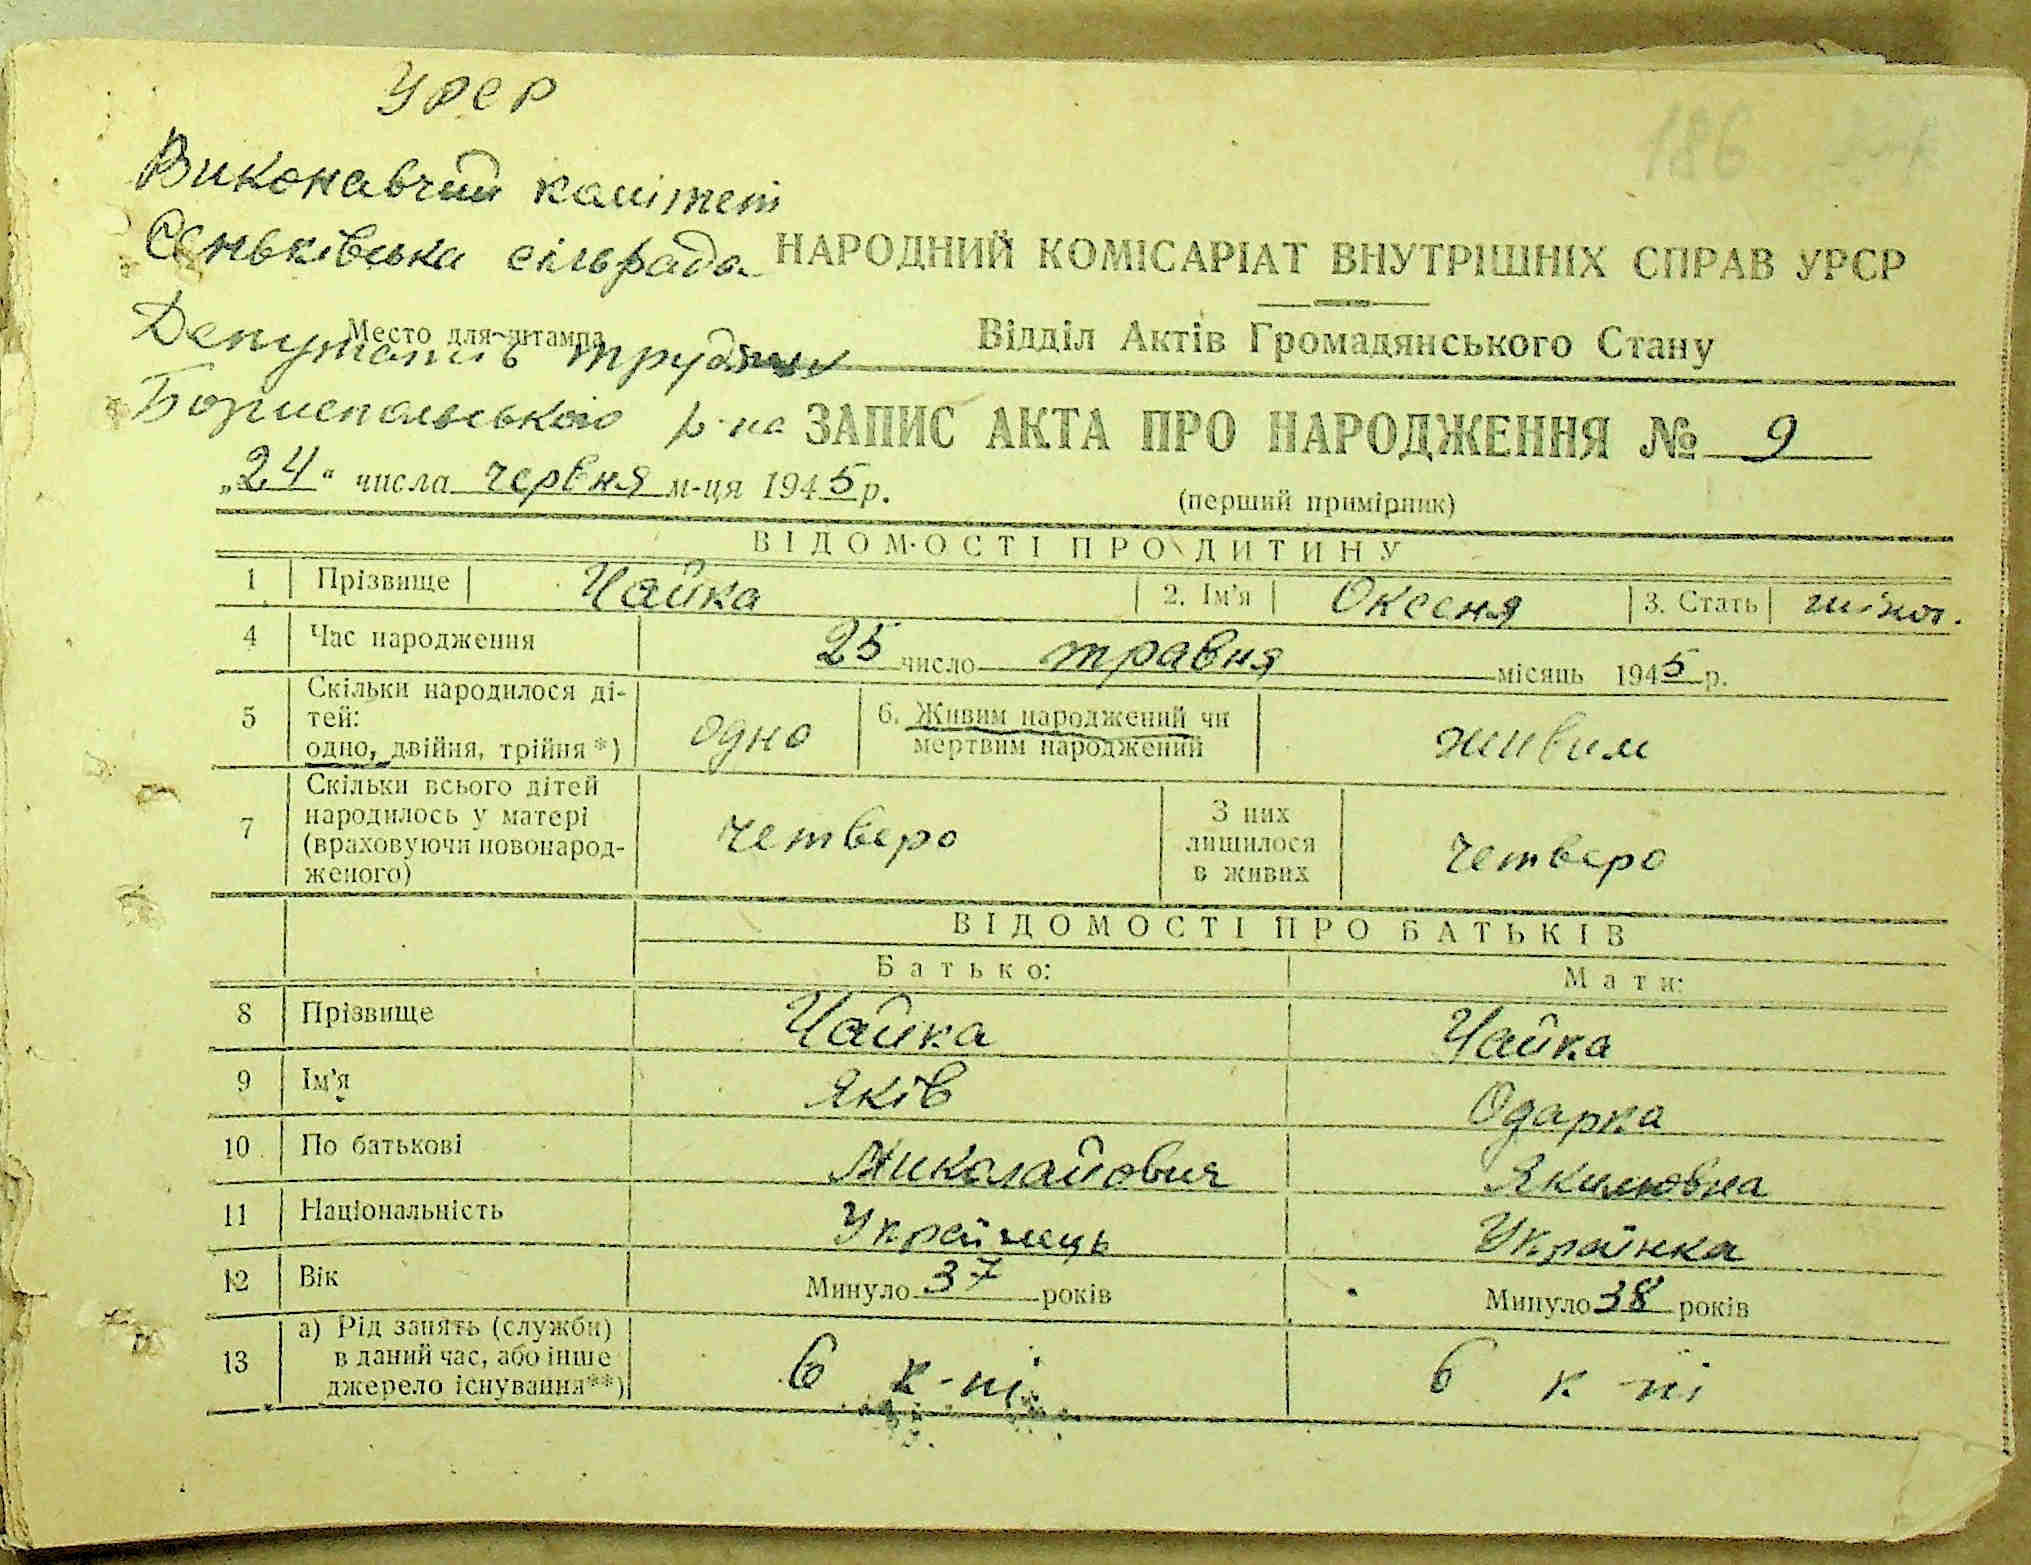 УРСР
186
Виконавчий комітет
Сеньківська сільрада
НАРОДНИЙ КОМІСАРІАТ ВНУТРІШНІХ СПРАВ УРСР
Место для штампа
Депутатів трудящих
Відділ Актів Громадянського Стану
Бориспольського р-на
ЗАПИС АКТА ПРО НАРОДЖЕННЯ № 9
„24“ числа червня м-ця 1945 р.
(перший примірник)
ВІДОМОСТІ ПРО ДИТИНУ
1 Прізвище Чайка 2. Ім'я Оксеня 3. Стать жіноч.
4 Час народження 25 число травня місяць 1945 р.
5 Скільки народилося ді-
тей:
одно, двійня, трійня *)
одно
6. Живим народжений чи
мертвим народжений
живим
7 Скільки всього дітей
народилось у матері
(враховуючи новонарод-
женого)
четверо
З них
лишилося
в живих
четверо
ВІДОМОСТІ ПРО БАТЬКІВ
Батько: Мати:
8 Прізвище Чайка Чайка
9 Ім'я Яків Одарка
10 По батькові Миколайович Якимовна
11 Національність Українець Українка
12 Вік Минуло 37 років Минуло 38 років
13 а) Рід занять (служби)
в даний час, або інше
джерело існування**)
в к-пі в к-пі